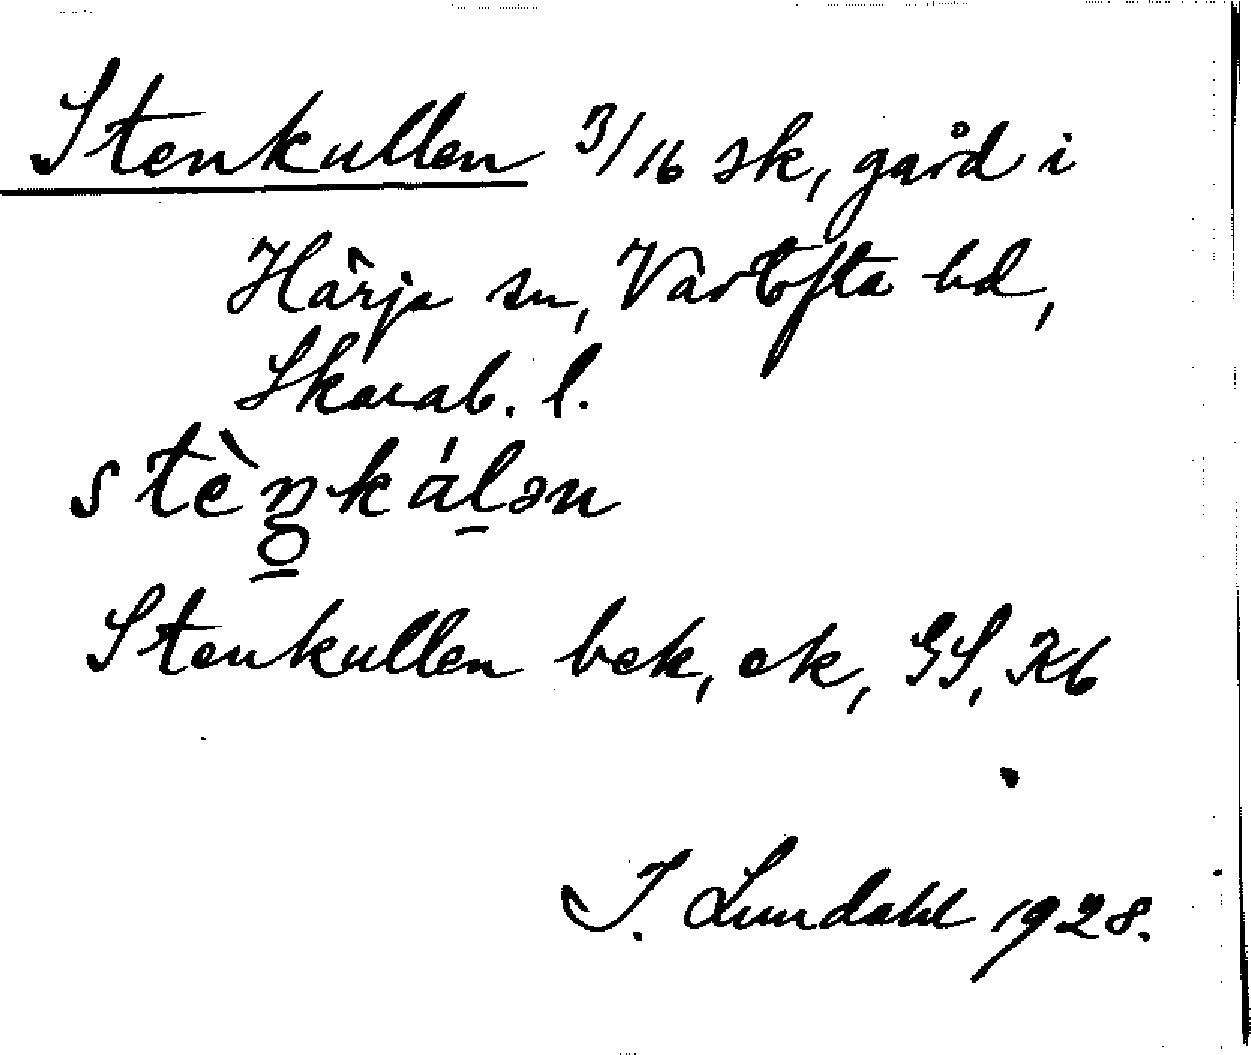 Stenkullen 3/16 sk, gård i
Härja sn, Vartofta hd,
Skarab. l.
stèn̥kálən
Stenkullen bek, ek, GS, Kb
I. Lundahl 1928.